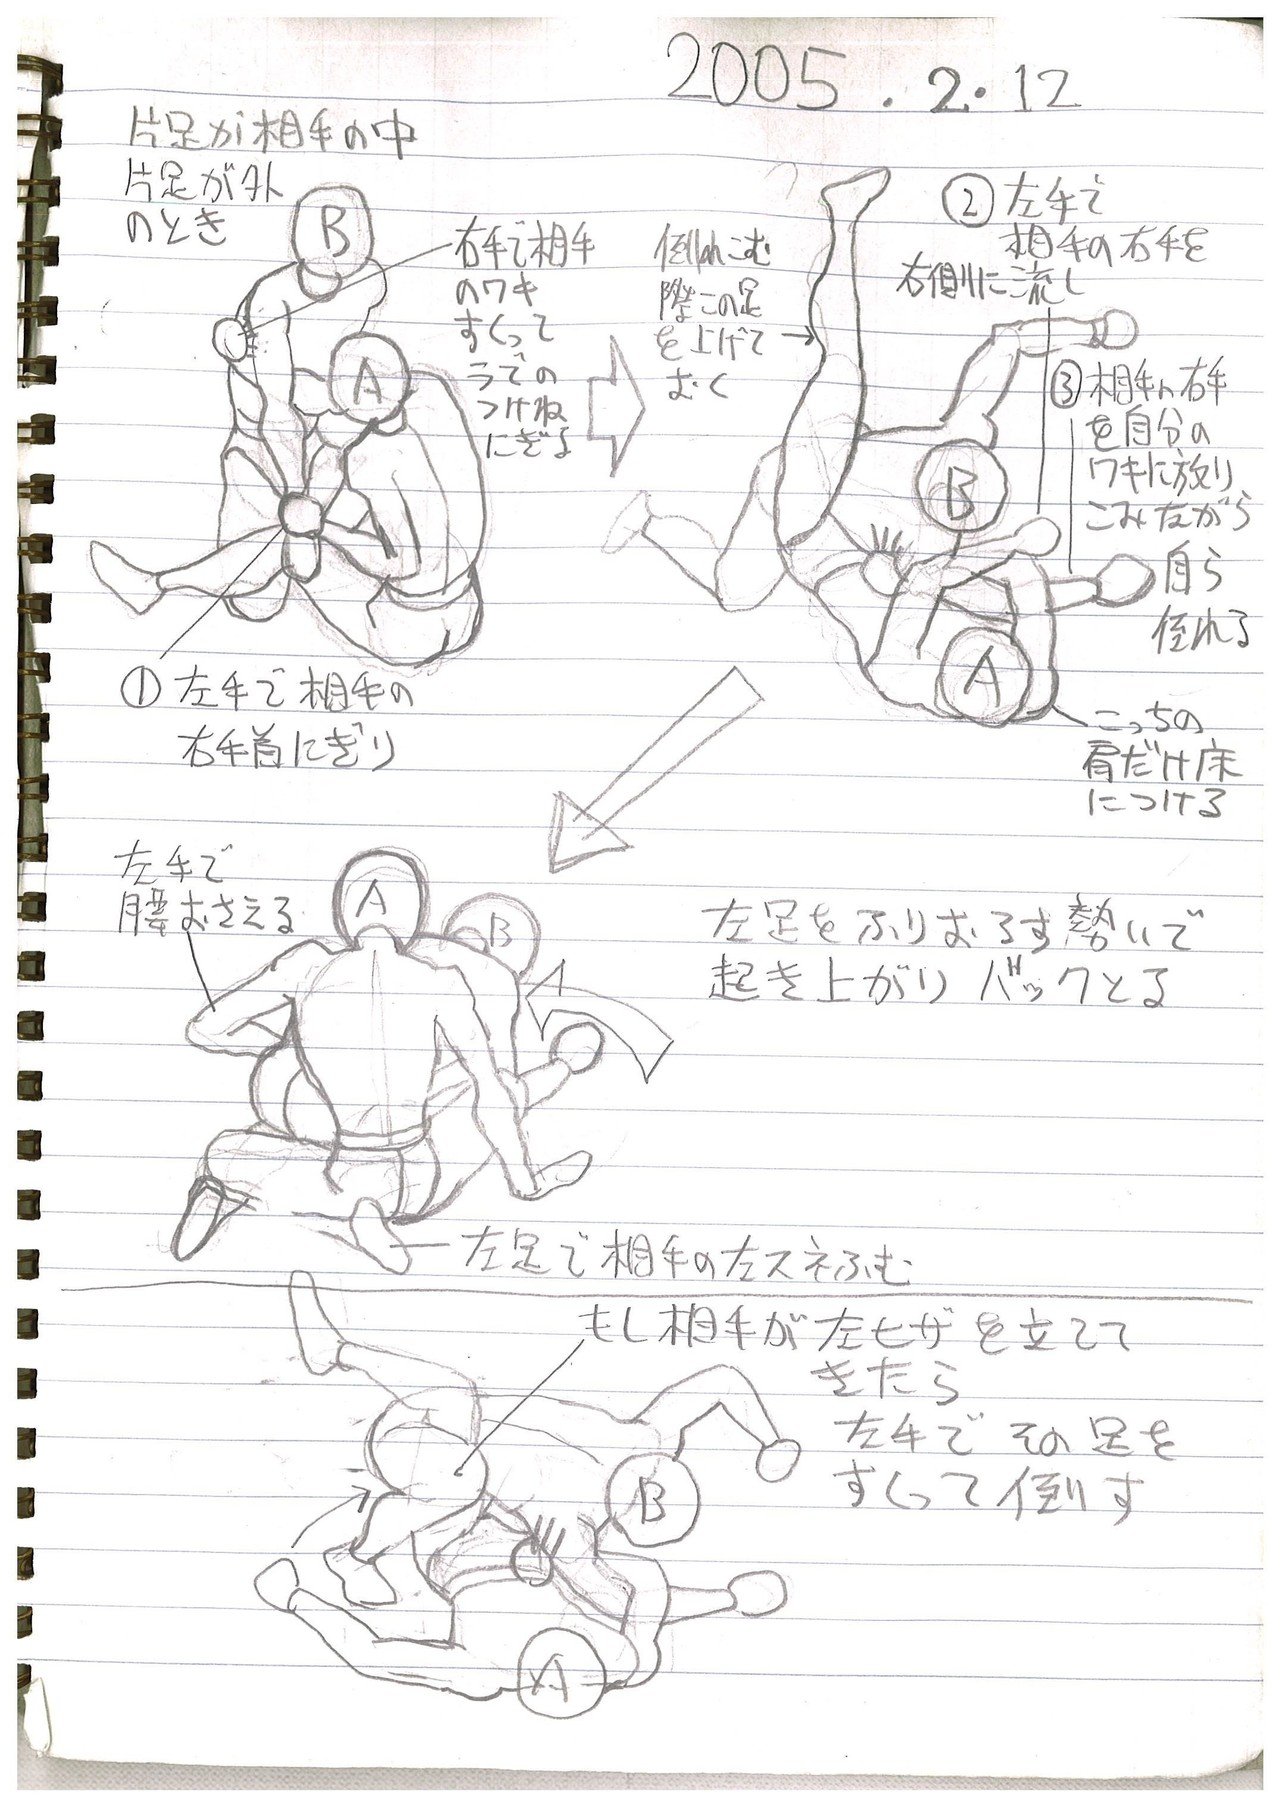 2005.2.12
片足が相手の中
片足が外
のとき
B
A
右手で相手
のワキ
すくって
うでの
つけね
にぎる
①左手で相手の
右手首にぎり
倒れこむ
際この足
を上げて
むく
②左手で
相手の右手を
右側に流し
③相手の右手
を自分の
ワキに放り
こみながら
自ら
倒れる
B
A
こっちの
肩だけ床
につける
左手で
腰おさえる
A
B
左足をふりおろす勢いで
起き上がりバックとる
左足で相手の左スネふむ
もし相手が左ヒザを立てて
きたら
左手でその足を
すくって倒す
B
A